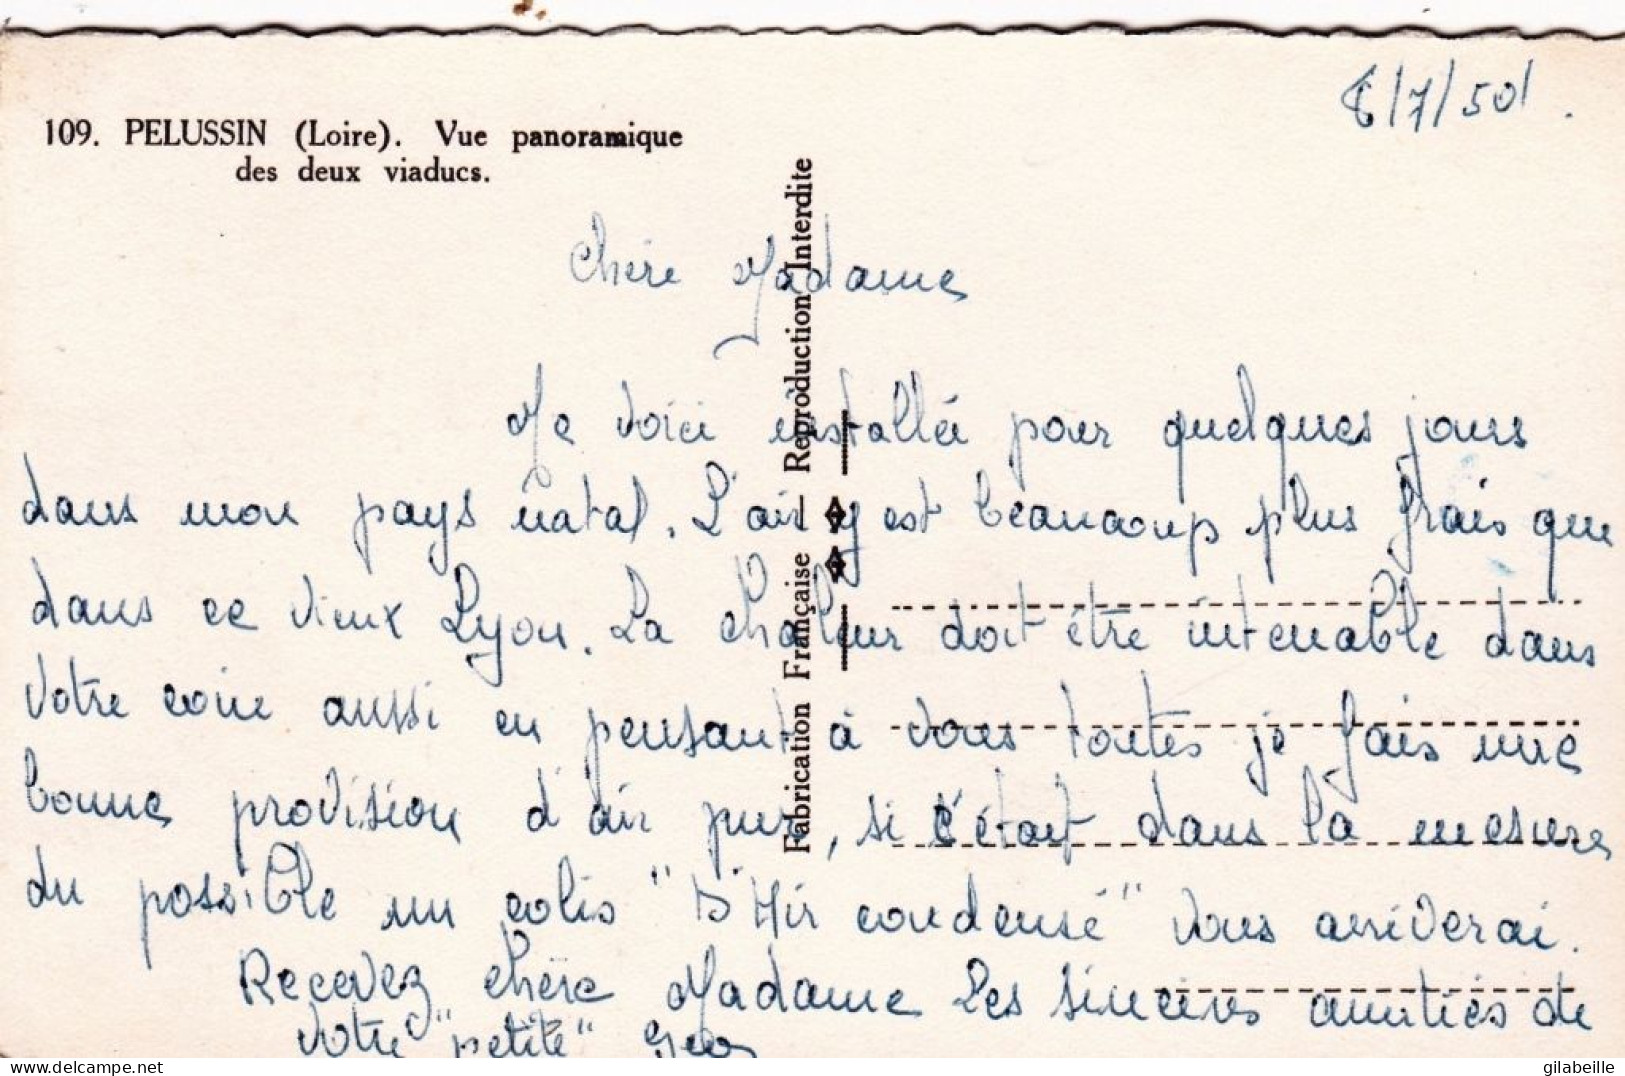 8/7/50
109. PELUSSIN (Loire). Vue panoramique
des deux viaducs.
Chère Madame
Me voici installée pour quelques jours
dans mon pays natal. L'air y est beaucoup plus frais que
dans ce vieux Lyon. La chaleur doit être intenable dans
votre coin aussi en pensant à vous toutes je fais une
bonne provision d'air pur, si c'était dans la mesure
du possible un colis "D'Air condensé" vous arriverai.
Recevez chère Madame les sincères amitiés de
votre "petite"
Fabrication Française — Reproduction Interdite
delcampe.net
gilabeille